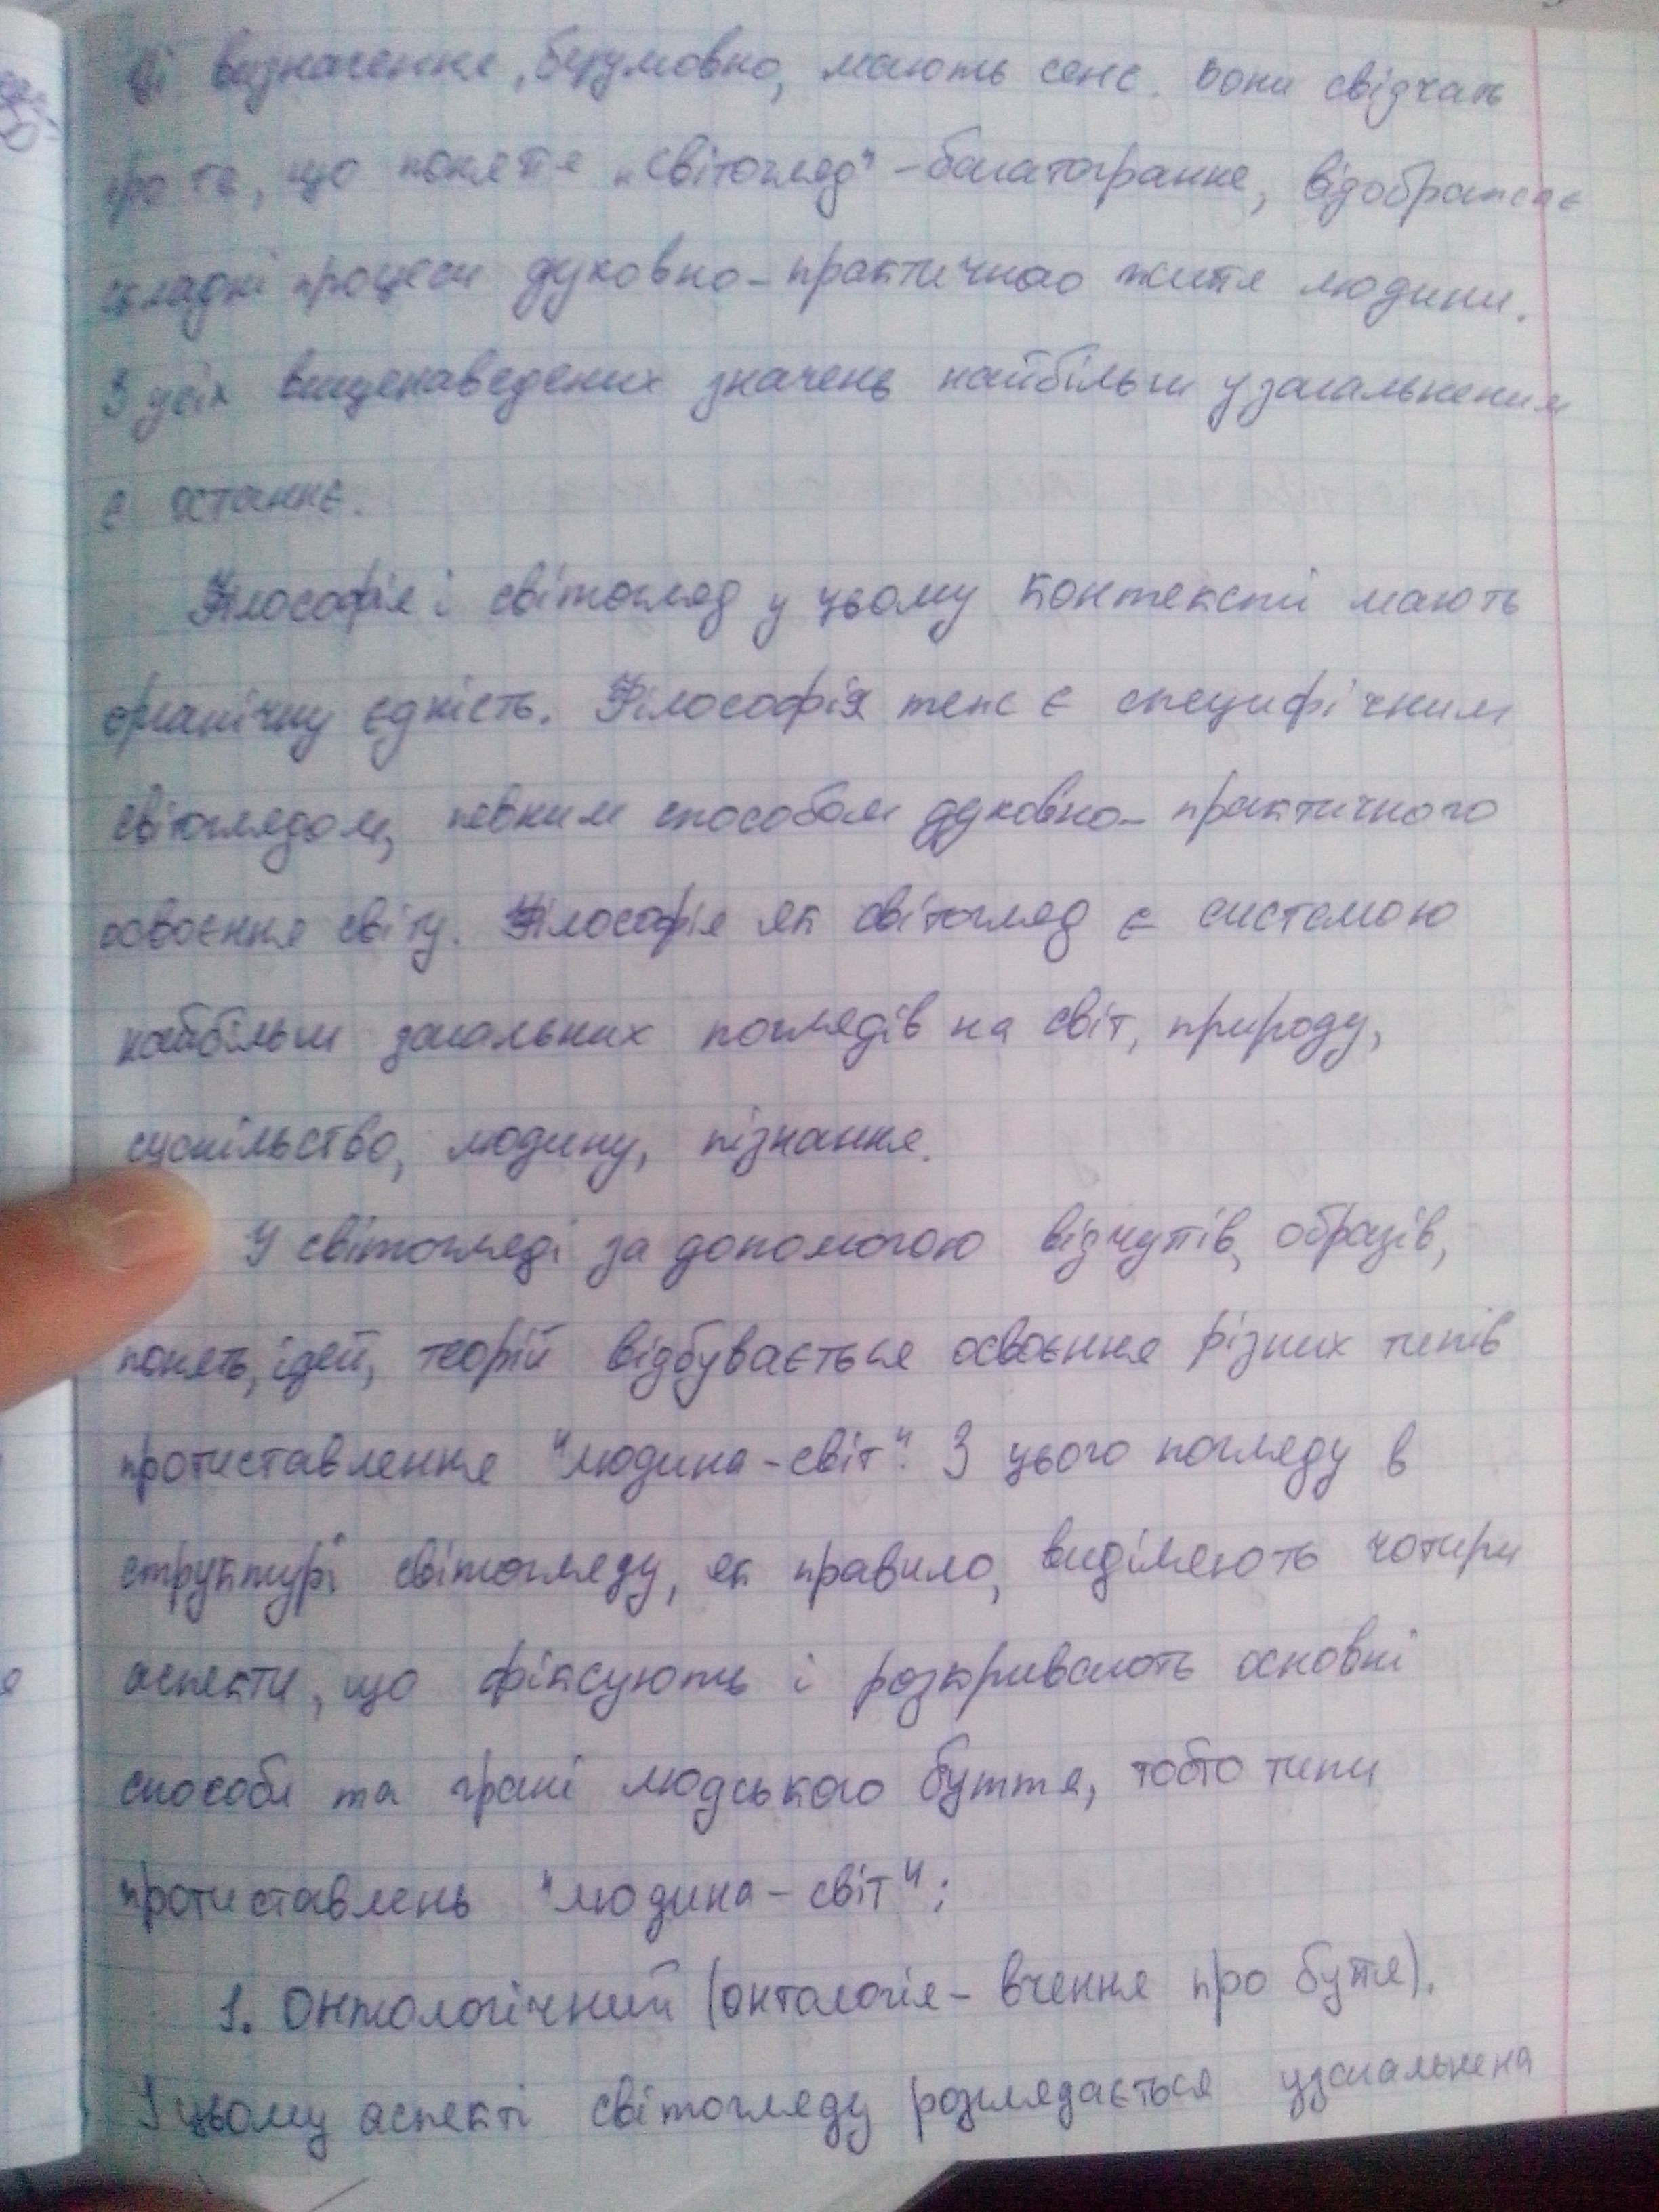 Ці визначення, безумовно, мають сенс. Вони свідчать
про те, що поняття „світогляд" - багатогранне, відображає
складні процеси духовно-практичного життя людини.
З усіх вищенаведених значень найбільш узагальненим
є останнє.
Філософія і світогляд у цьому контексті мають
органічну єдність. Філософія теж є специфічним
світоглядом, певним способом духовно-практичного
освоєння світу. Філософія як світогляд є системою
найбільш загальних поглядів на світ, природу,
суспільство, людину, пізнання.
У світогляді за допомогою відчуттів, образів,
понять, ідей, теорій відбувається освоєння різних типів
протиставлення "людина-світ". З цього погляду в
структурі світогляду, як правило, виділяють чотири
аспекти, що фіксують і розкривають основні
способи та грані людського буття, тобто типи
протиставлень "людина-світ":
1. Онтологічний (онтологія - вчення про буття).
У цьому аспекті світогляду розглядається узагальнена